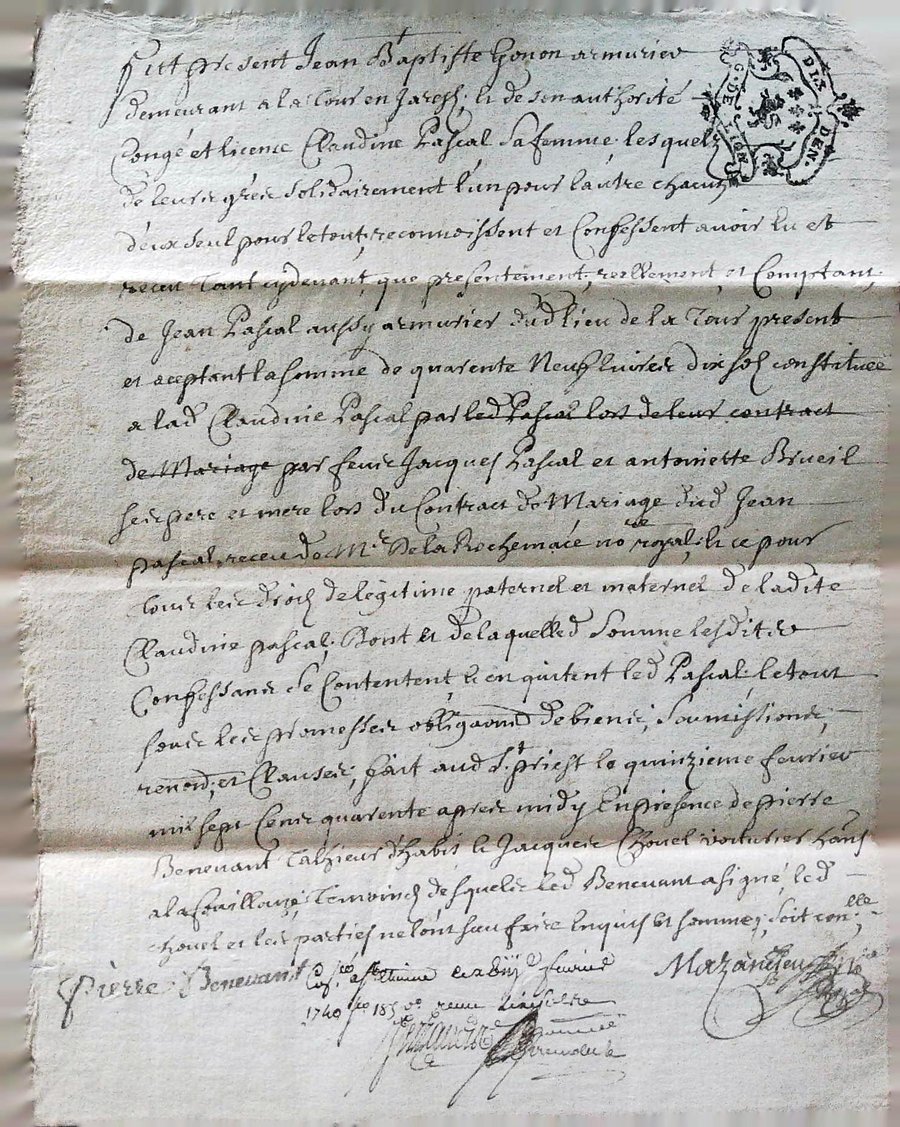 Fut present Jean Baptiste Gonon armurier
demeurant a la Tour en Jarest, & de son authorité
Congé et licence Claudine Pascal sa femme, lesquels
de leurs grés solidairement l'un pour lautre chacun
deux seul pour le tout, reconnoissent et Confessent avoir eu et
receu tant cydevant, que presentement, reellement, et Comptant,
de Jean Pascal aussy armurier dud lieu de la Tour present
et aceptant la somme de quarente Neuf livres dix sol constituée
a lad Claudine Pascal par led Pascal lors de leur contract
de Mariage par feus Jacques Pascal et antoinette Brueil
ses pere et mere lors du Contract de Mariage dud Jean
Pascal, receu de Me De la Rochemace nore royal, & ce pour
tous les droits de legitime paternel et maternel de ladite
Claudine pascal; Dont et de laquelle d somme lesdites
Confessans se Contentent, & en quitent led Pascal; le tout
sous les promesses obligaond de biens, soumissions,
renond, et Clauses; fait aud St priest le quinzieme fevrier
mil sept Cens quarente apres midy En presence de pierre
Benevant Tallieur d'habis & Jacques Chovel voiturier
a la fouillouze, temoins desquels led Benevant a signé, led
chovel et les parties ne lont sau faire Enquis et sommes, soit conlle
Pierre Benevant
Mazandieu
fevrier
1740